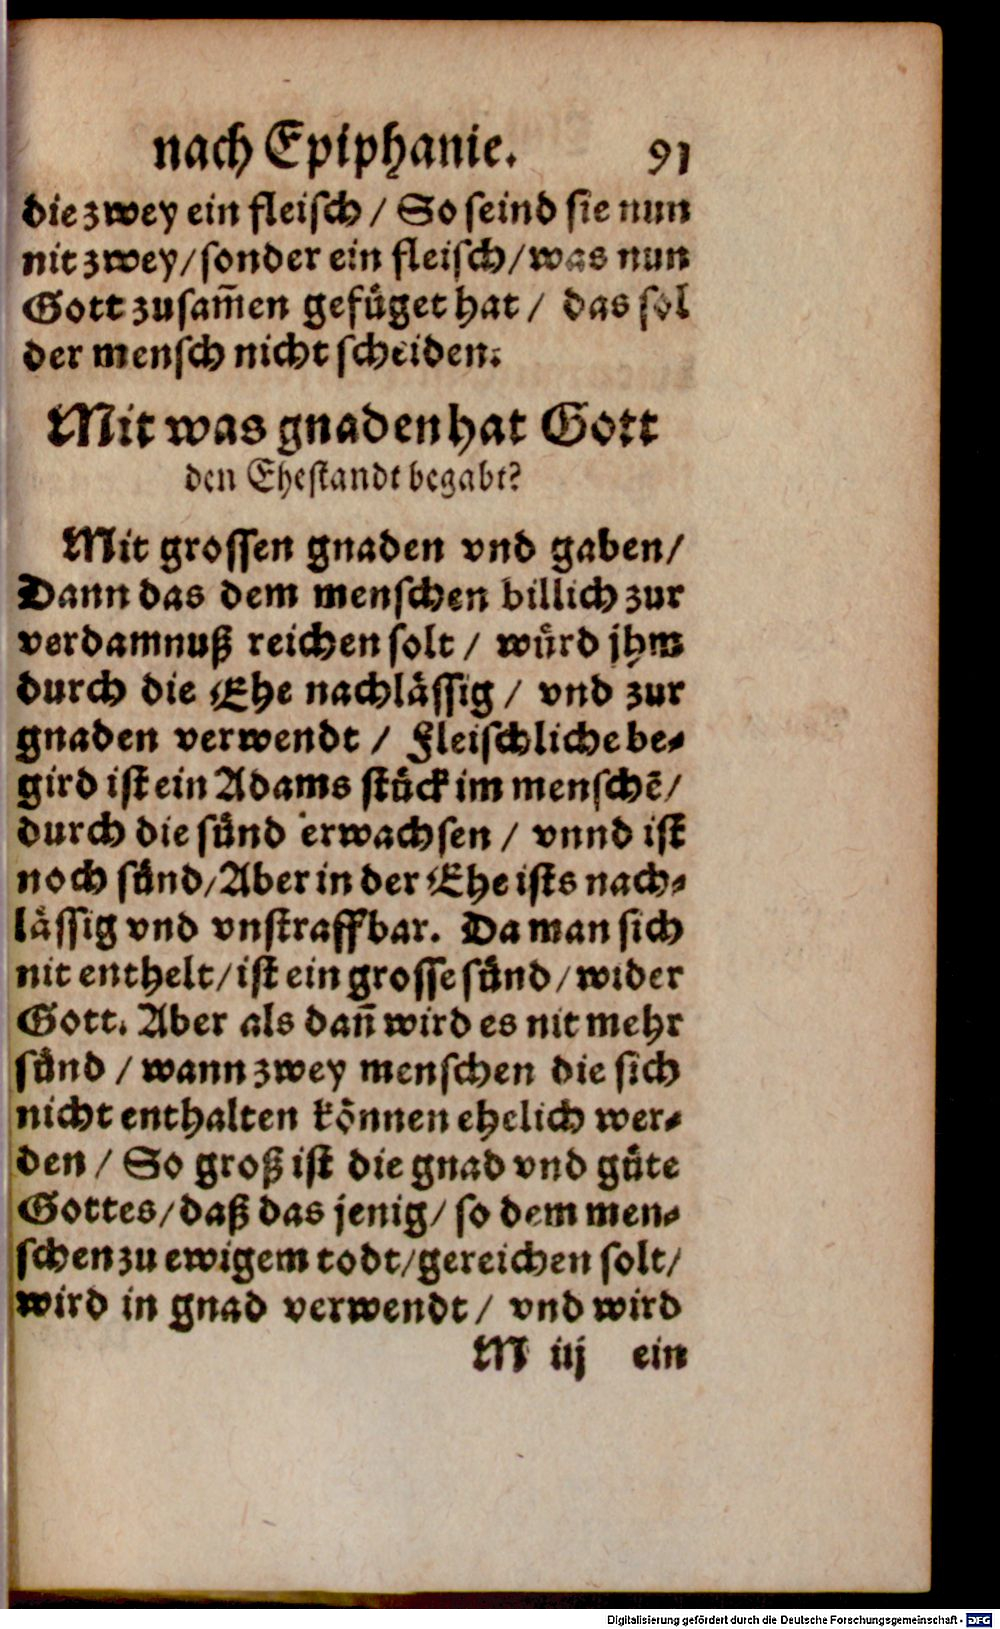 nach Epiphanie. 91
die zwey ein fleisch / So seind sie nun
nit zwey/sonder ein fleisch/was nun
Gott zusam̃en gefüget hat / das sol
der mensch nicht scheiden.
Mit was gnaden hat Gott
den Ehestandt begabt?
Mit grossen gnaden vnd gaben/
Dann das dem menschen billich zur
verdamnuß reichen solt / würd jhm
durch die Ehe nachlässig / vnd zur
gnaden verwendt / Fleischliche be-
gird ist ein Adams stück im menschē/
durch die sünd erwachsen / vnnd ist
noch sünd/Aber in der Ehe ists nach-
lässig vnd vnstraffbar. Da man sich
nit enthelt/ist ein grosse sünd/wider
Gott. Aber als dañ wird es nit mehr
sünd / wann zwey menschen die sich
nicht enthalten können ehelich wer-
den / So groß ist die gnad vnd güte
Gottes/daß das jenig/so dem men-
schen zu ewigem todt/gereichen solt/
wird in gnad verwendt / vnd wird
M iij ein
Digitalisierung gefördert durch die Deutsche Forschungsgemeinschaft - DFG